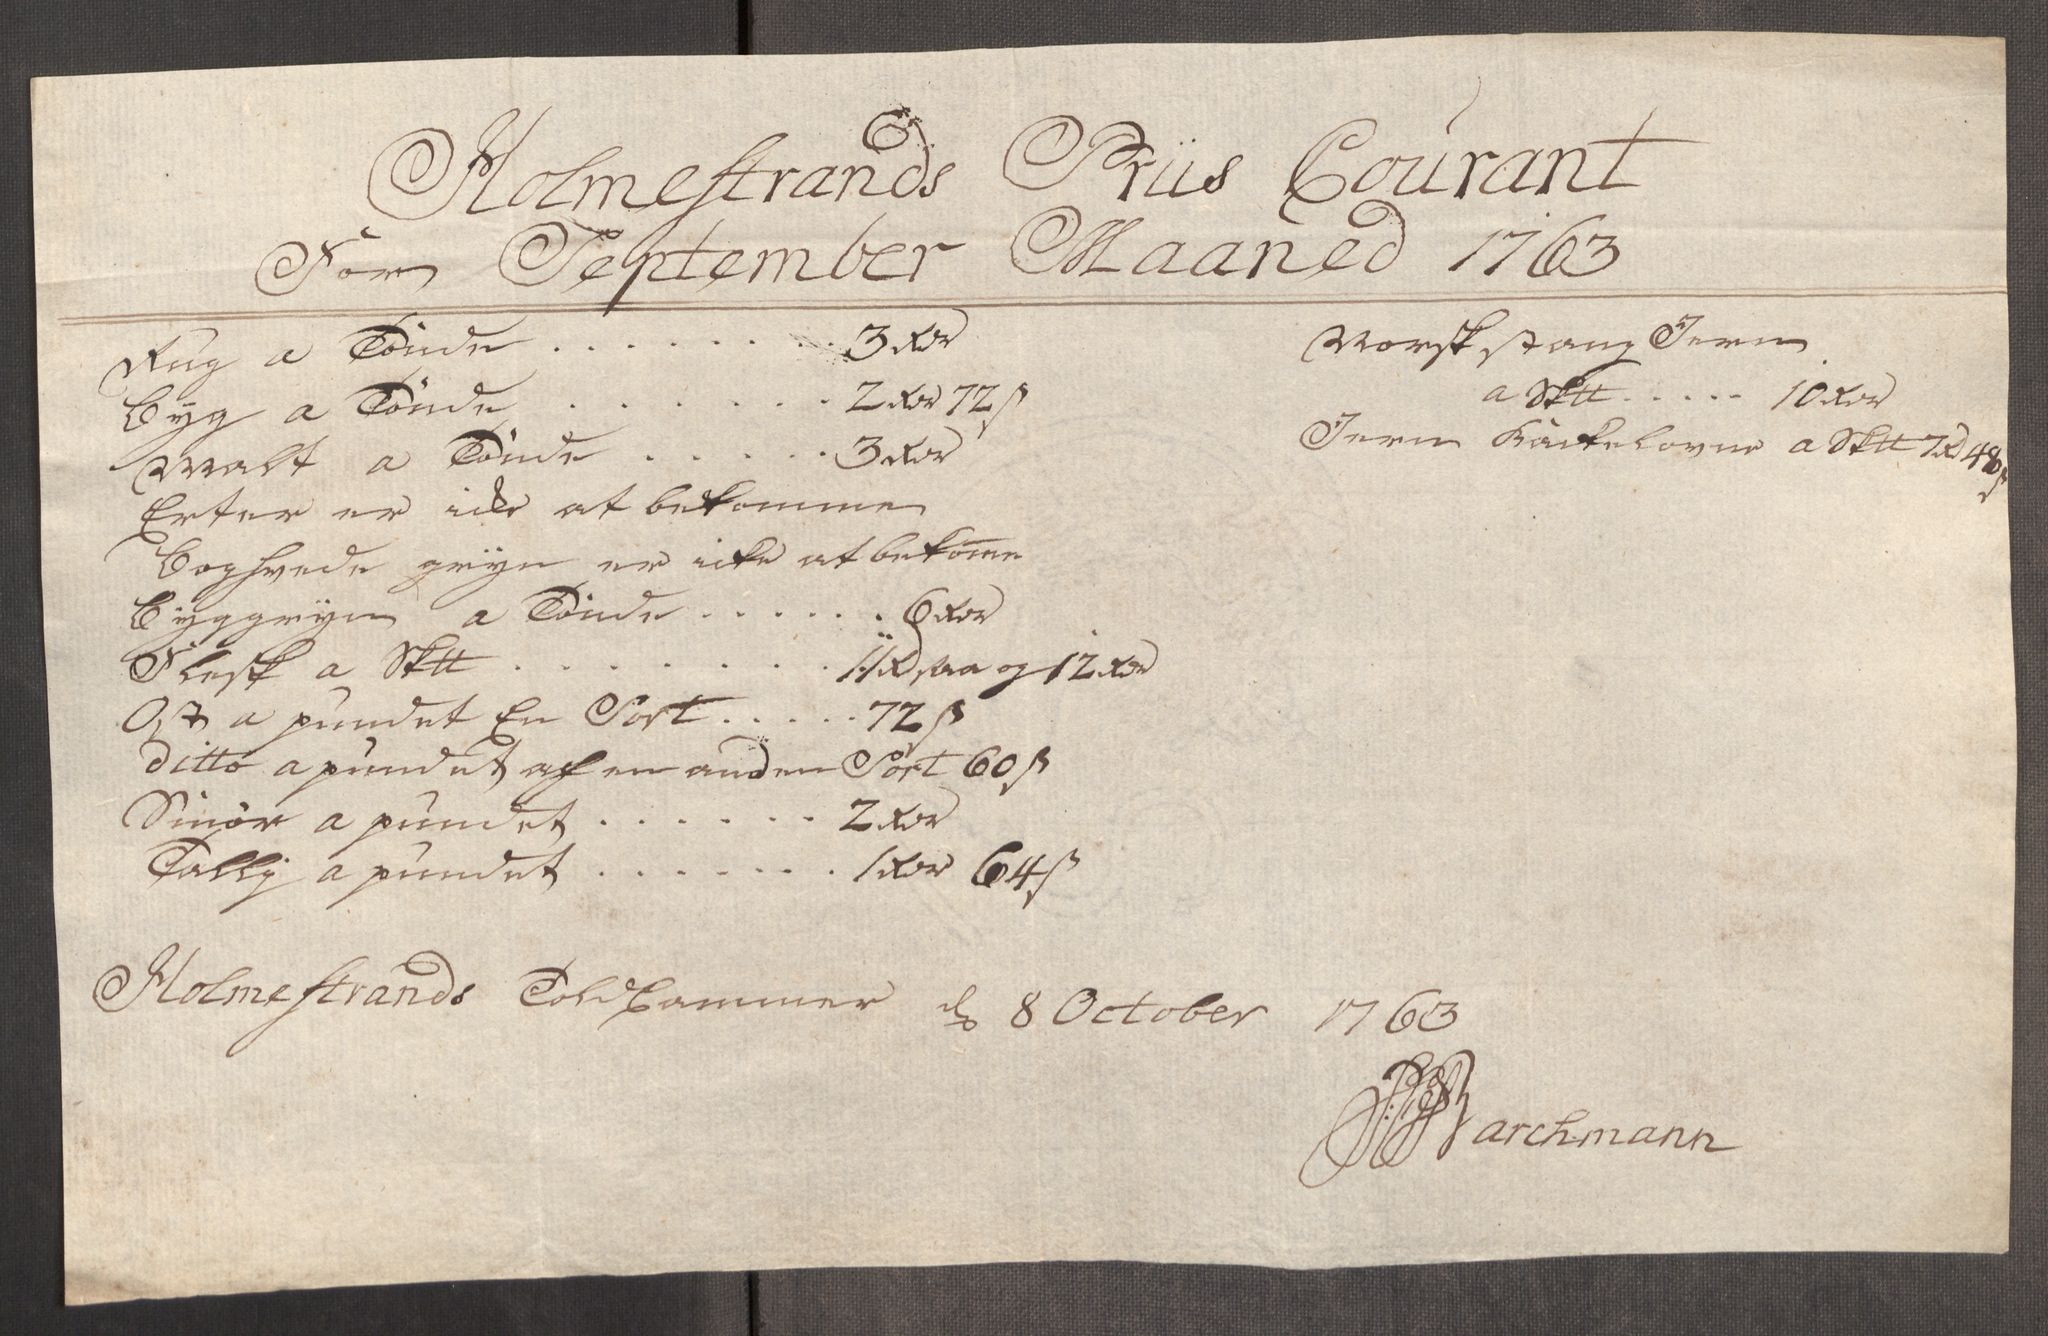 Holmestrands Priis Courant
For September Maaned 1763
Rug a Tønde . . . . . . . . 3 Rdr
Byg a Tønde . . . . . . . 2 Rdr 72 ß
Malt a Tønde . . . . . 3 Rdr
Erter er icke at bekomme
Boghvede grÿn er icke at bekom̅e
Bÿggrÿn a Tønde . . . . . . 6 Rdr
Flesk a Sktt . . . . . . . . . 11 Rd saa og 12 Rdr
Ost a pundet En Sort . . . . . 72 ß
ditto a pundet af en anden Sort 60 ß
Smør a pundet . . . . . . 2 Rdr
Tallig a pundet . . . . . . . 1 Rdr 64 ß
Norsk stang Jern
a Sktt . . . . . 10 Rdr
Jern Kackelovne a Sktt 7 Rd 48 ß
Holmestrands Told Cammer d. 8 October 1763
Barchmann